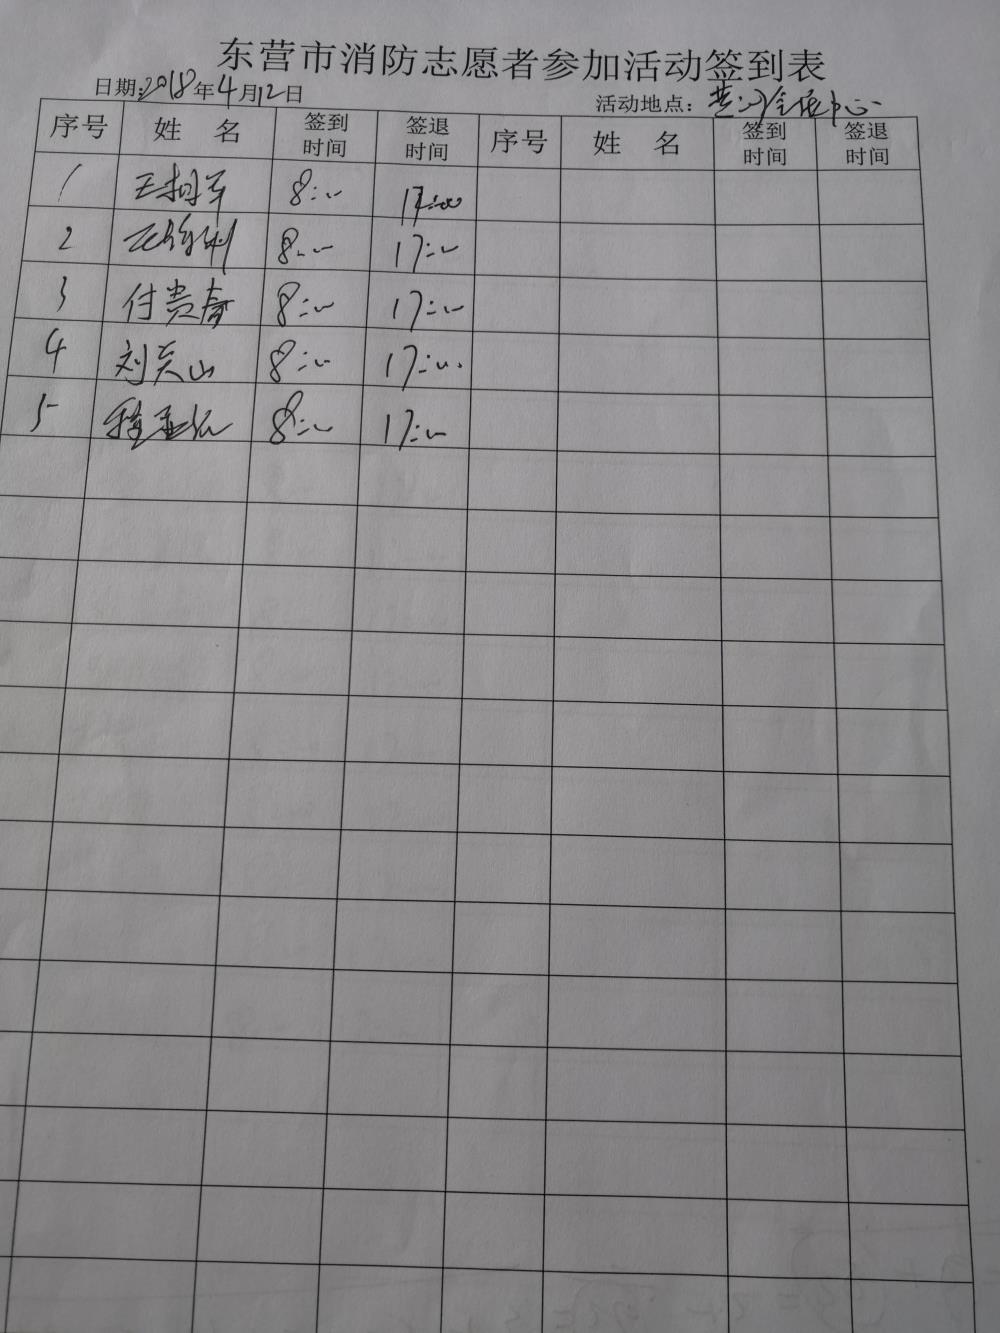 东营市消防志愿者参加活动签到表
日期:2018年4月12日 活动地点:黄河会展中心
序号 姓名 签到时间 签退时间 序号 姓名 签到时间 签退时间
1 王相军 8:00 17:00
2 8:00 17:00
3 付贵春 8:00 17:00
4 刘炎山 8:00 17:00
5 8:00 17:00